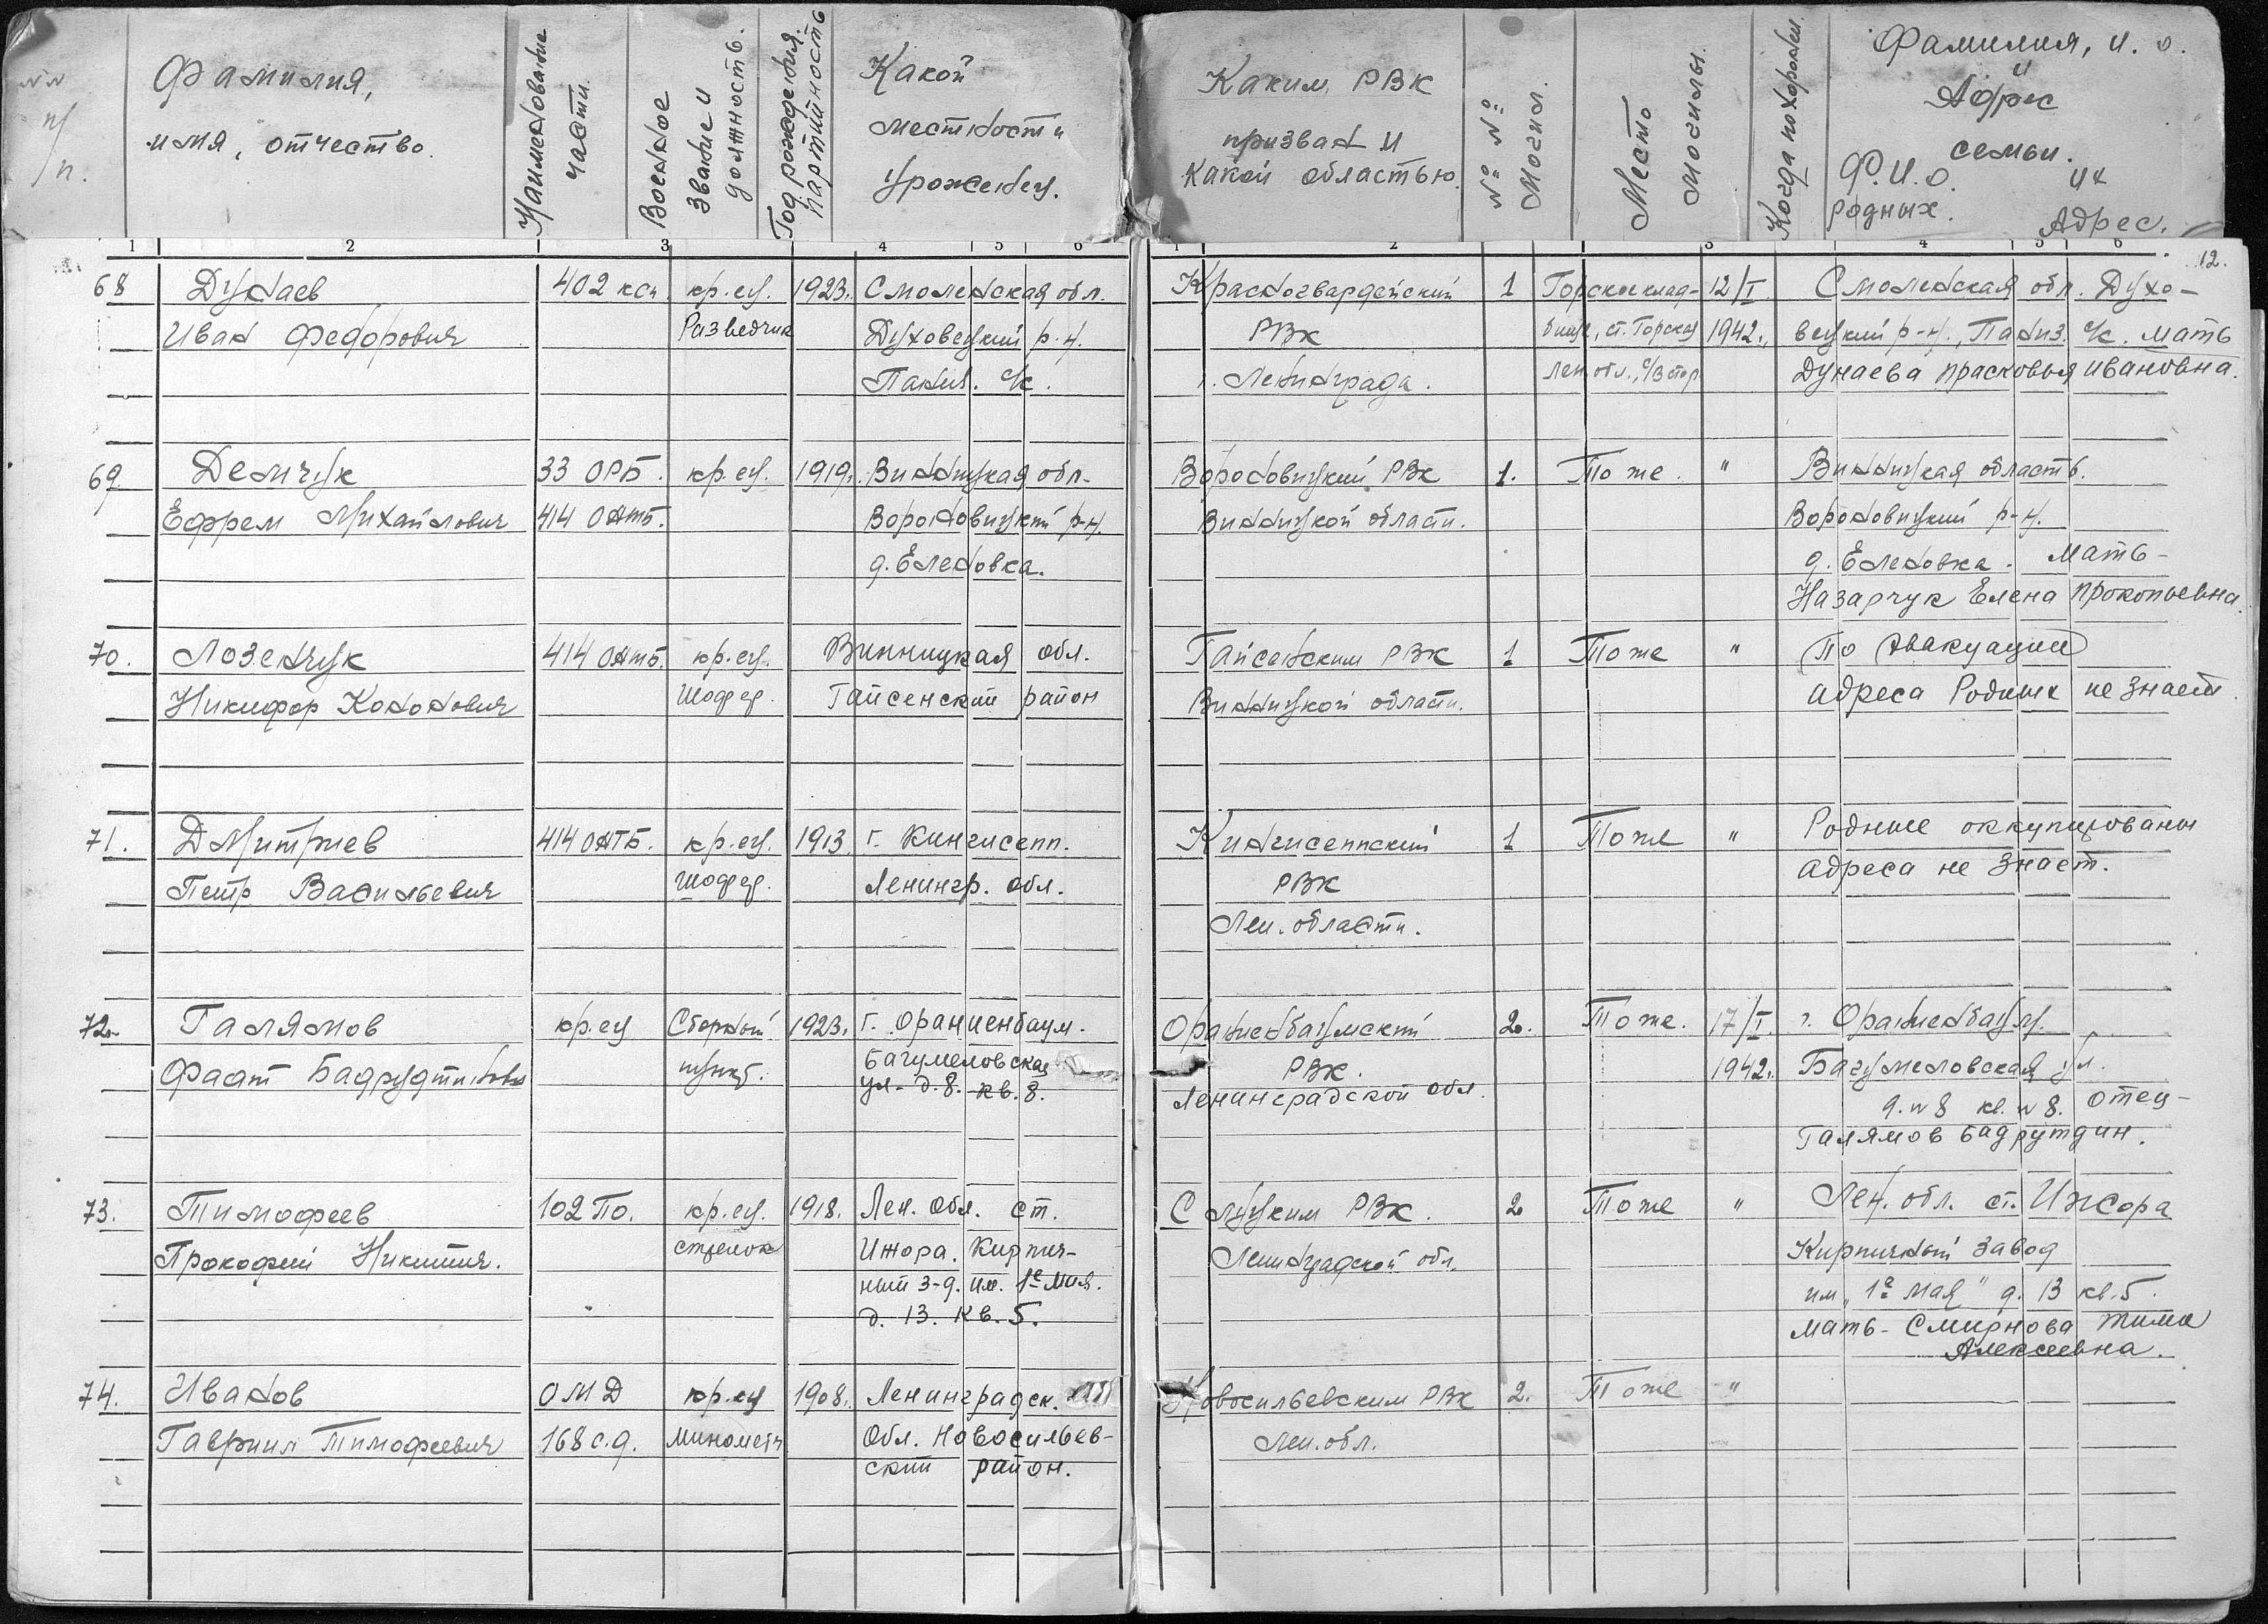 №№ п/п.
Фамилия,
имя, отчество.
Наименование части.
Военное звание и должность.
Год рождения. партийность
Какой
местности
уроженец.
Каким РВК
призван и
какой областью.
№№ могил.
Место могилы.
Когда похоронен.
Фамилия, и. о.
и
Адрес
семьи.
Ф.И.О. их
родных. Адрес.
1 2 3 4 5 6
1 2 3 4 5 6
12.
68 Дунаев 402 ксп кр-ец. 1923. Смоленская обл. Красногвардейский 1 Горское клад- 12/I Смоленская обл. Духо-
Иван Федорович Разведчик Духовецкий р-н. РВК бище, ст. Горская 1942., вецкий р-н., Паниз. с/с. мать
Паниз. с/с. г. Ленинграда. Лен обл., Дунаева Прасковья Ивановна.
69. Демчук 33 ОРБ. кр-ец. 1919. Винницкая обл. Вороновицкий РВК 1. То же. " Винницкая область.
Ефрем Михайлович 414 ОАТБ. Вороновицкий р-н. Винницкой области. Вороновицкий р-н.
д. Еленовка. д. Еленовка. Мать-
Назарчук Елена Прокопьевна.
70. Лозенчук 414 ОАТБ. кр-ец. Винницкая обл. Гайсенским РВК 1 То же " По Эвакуации
Никифор Кононович Шофер. Гайсенский район Винницкой области. адреса Родных не знает.
71. Дмитриев 414 ОАТБ. кр-ец. 1913. г. Кингисепп. Кингисеппский 1 То же " Родные оккупированы
Петр Васильевич шофер. Ленингр. обл. РВК адреса не знает.
Лен. области.
72. Галямов кр-ец Сборный 1923. г. Ораниенбаум. Ораниенбаумский 2. То же. 17/I. г. Ораниенбаум.
Фаат Бадрудтинович пункт. Багумеловская РВК. 1942. Багумеловская ул.
ул. д. 8. кв. 8. Ленинградской обл. д. № 8 кв. № 8. отец-
Галямов Бадрутдин.
73. Тимофеев 102 По. кр-ец. 1918. Лен. обл. ст. Слуцким РВК. 2 То же " Лен. обл. ст. Ижора
Прокофий Никитич. стрелок Ижора. Кирпич- Ленинградской обл. Кирпичный завод
ный з-д. им. 1е мая. им „1е мая" д. 13 кв. 5.
д. 13. кв. 5. Мать - Смирнова
Алексеевна.
74. Иванов ОМД кр-ец 1908. Ленинградск. Новосильевским РВК 2. То же "
Гавриил Тимофеевич 168 с.д. минометч Обл. Новосильев- Лен. обл.
ский район.